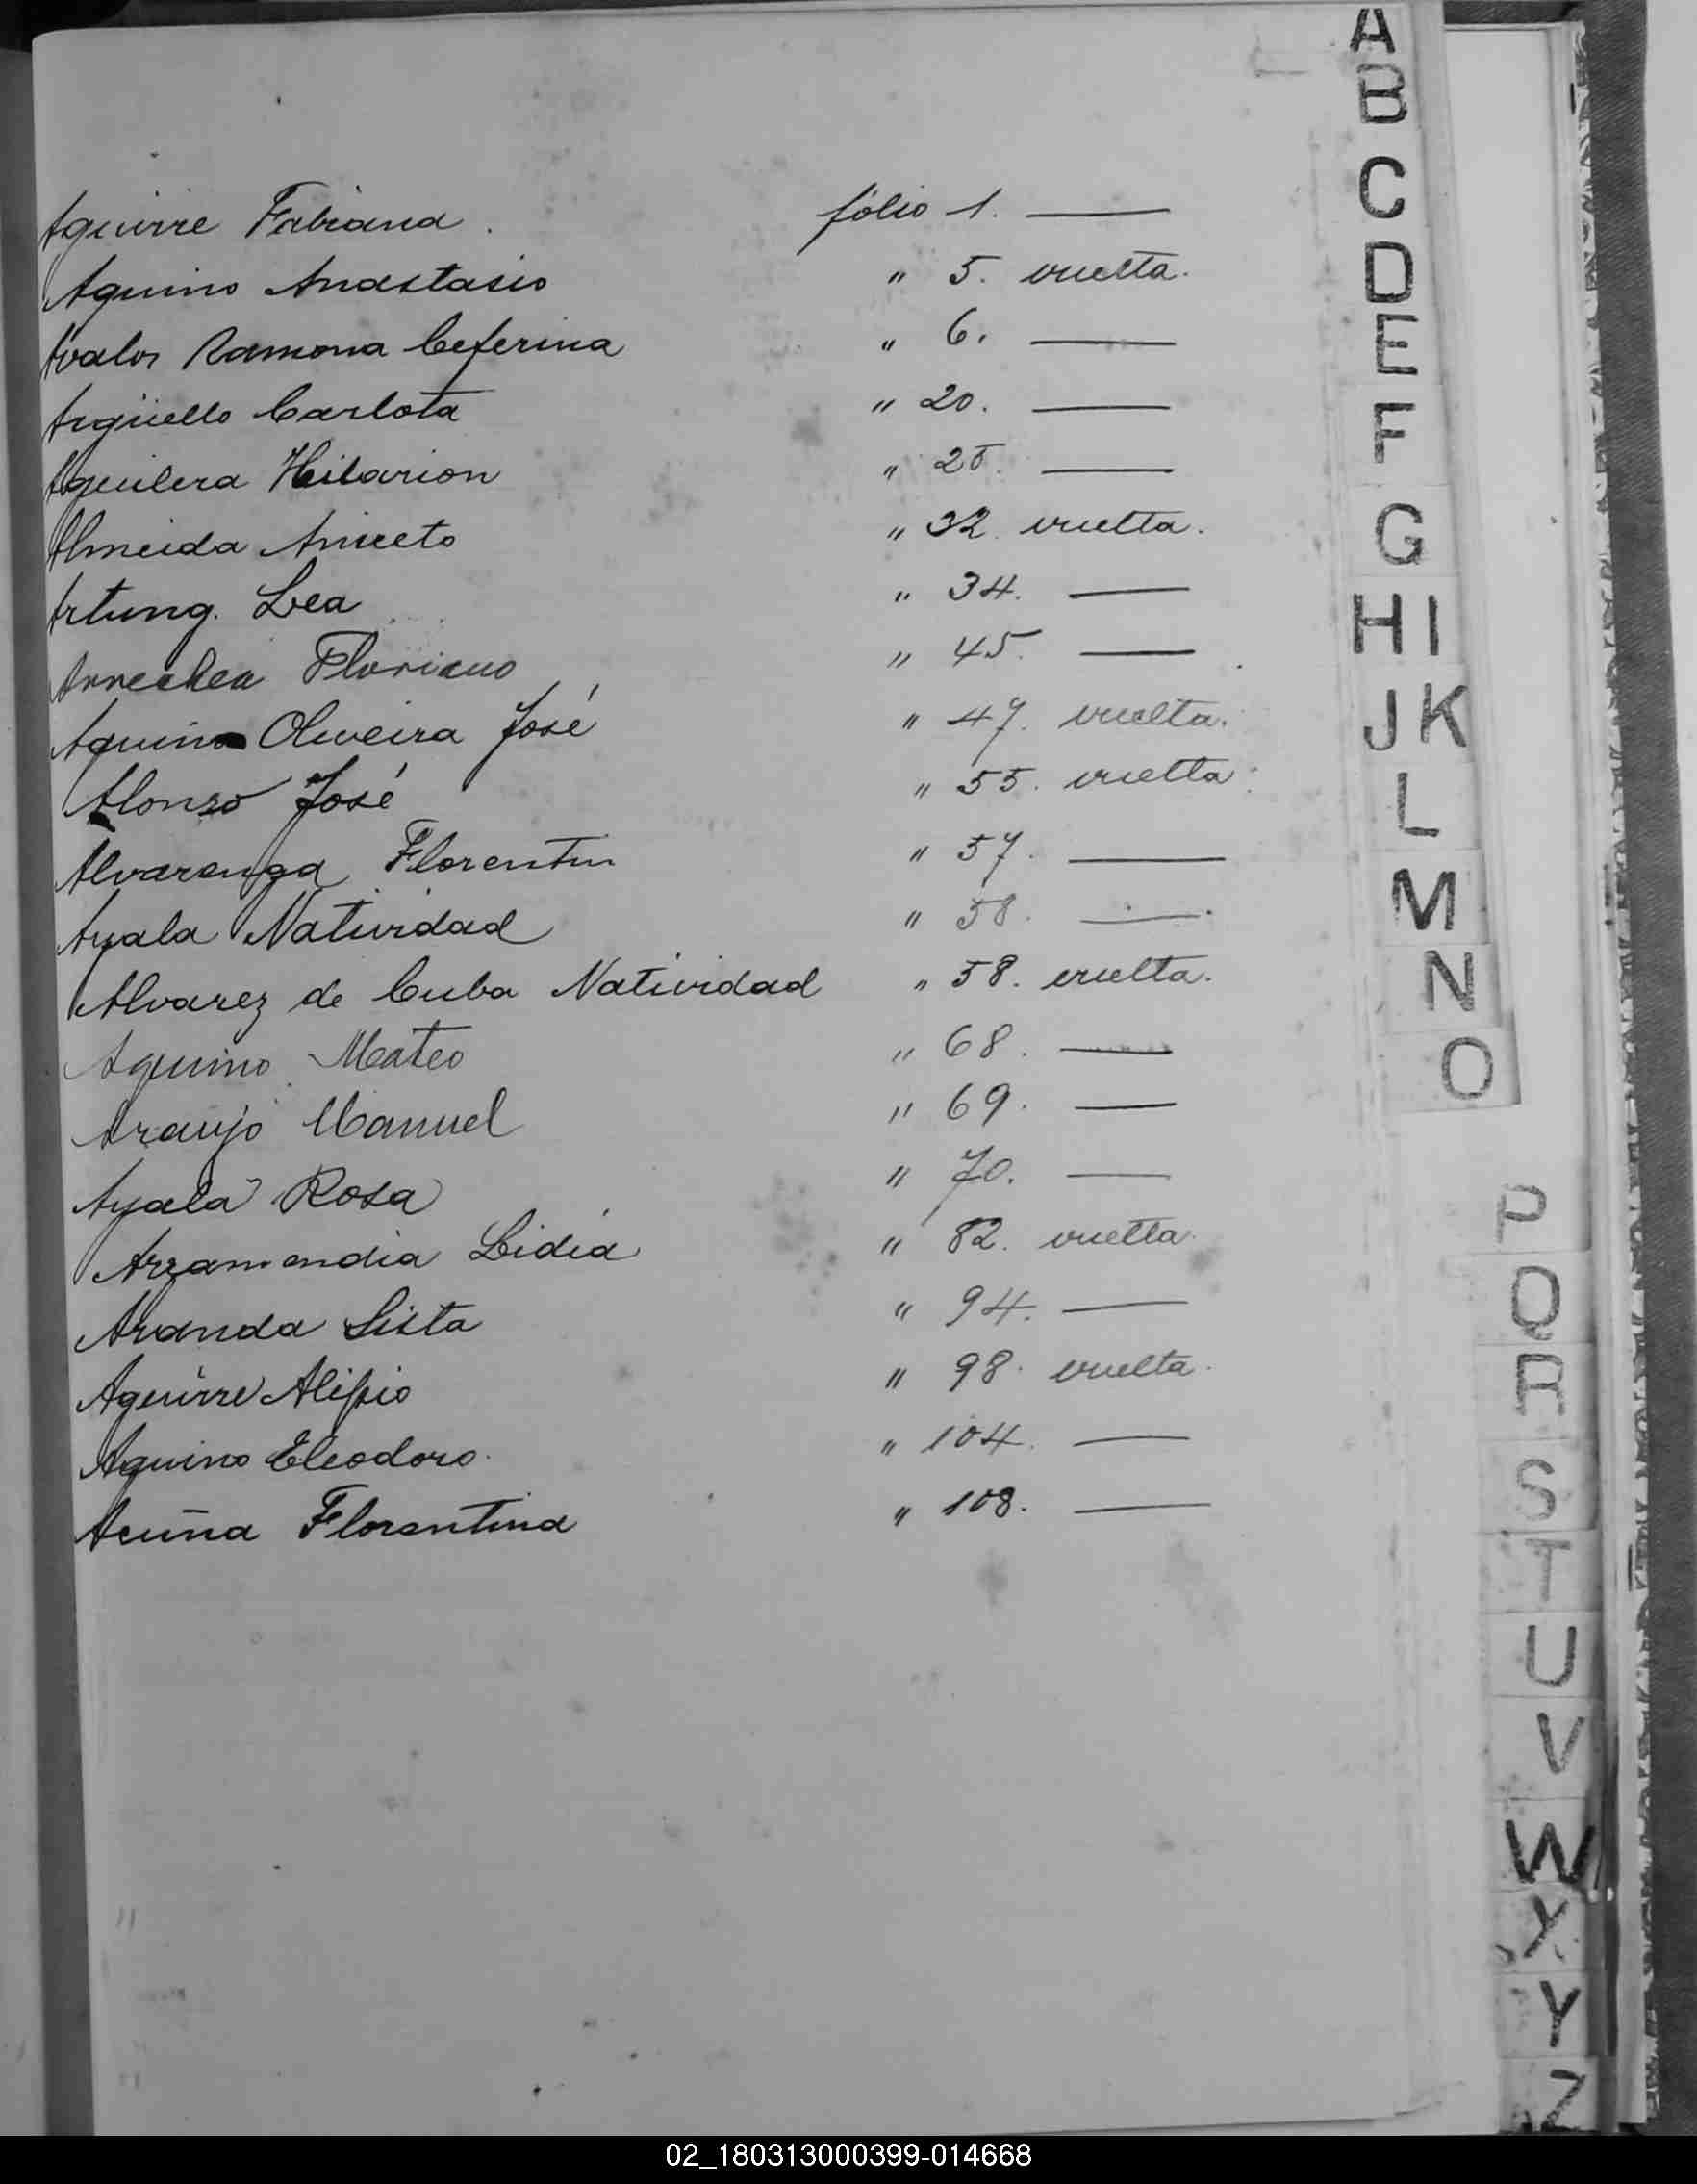 Aguirre Fabiana. fólio 1. ——
Aquino Anastasio " 5. vuelta.
Avalos Ramona Ceferina " 6. ——
Argüello Carlota " 20. ——
Aguilera Hilarion " 25. ——
Almeida Aniceto " 32. vuelta.
Artung. Lea " 34. ——
Arrechea Floriano " 45. ——
Aquino Oliveira José " 47. vuelta.
Alonso José " 55. vuelta.
Alvarenga Florentin " 57. ——
Ayala Natividad " 58. ——
Alvarez de Cuba Natividad " 58. vuelta.
Aquino Mateo " 68. ——
Araujo Manuel " 69. ——
Ayala Rosa " 70. ——
Arzamendia Lidia " 82. vuelta.
Aranda Sista " 94. ——
Aguirre Alipio " 98. vuelta.
Aquino Eleodoro. " 104. ——
Acuña Florentina " 108. ——
A
B
C
D
E
F
G
HI
JK
L
M
N
O
P
Q
R
S
T
U
V
W
X
Y
Z
02_180313000399-014668